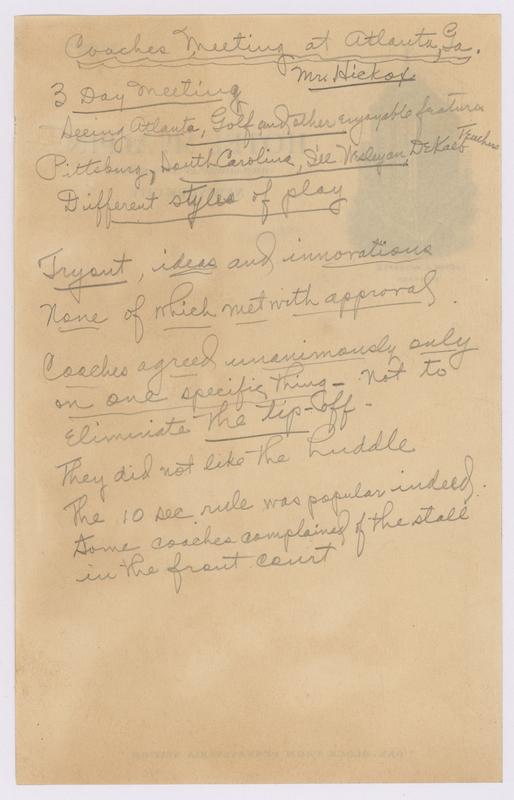 Coaches Meeting at Atlanta, Ga.
Mr. Hickox
3 Day Meeting
Seeing Atlanta, Golf and other enjoyable features
Pittsburg, South Carolina, Ill Wesleyan, DeKalb Teachers
Different styles of play
Tryout, ideas and innovations
None of which met with approval.
Coaches agreed unanimously only
on one specific thing - Not to
Eliminate the tip-off -
They did not like the huddle
The 10 sec rule was popular indeed.
Some coaches complained of the stall
in the front court